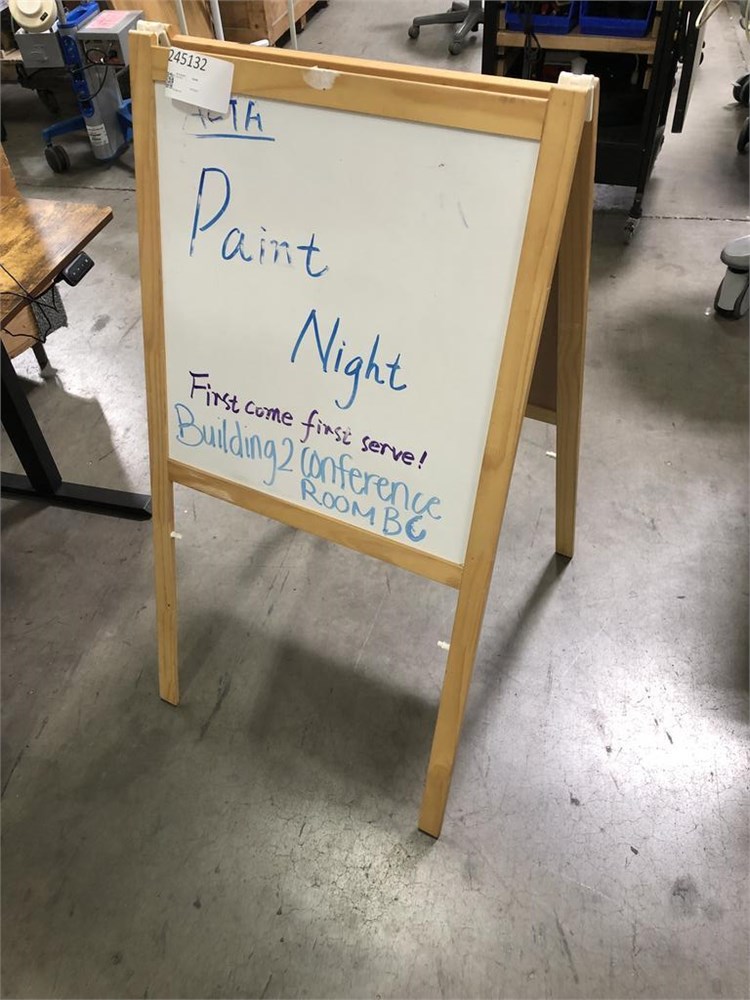 245132
Paint
Night
First come first serve!
Building 2 Conference
ROOM BC